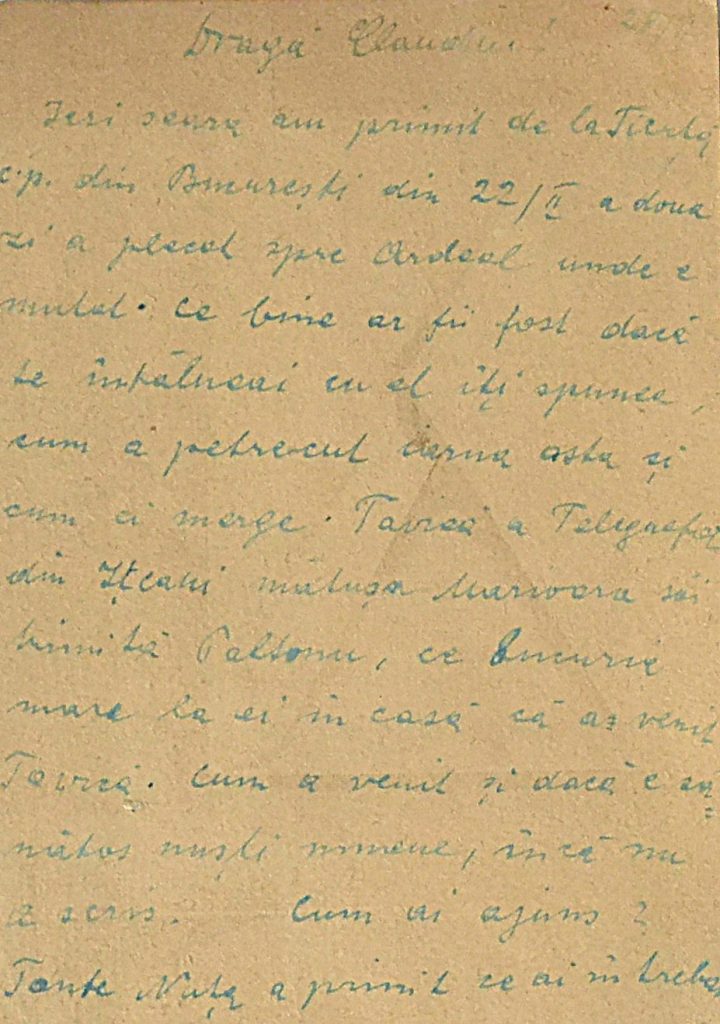 Dragă Claudiu!
Ieri seara am primit de la
c.p. din București din 22/II a doua
zi a plecat spre Ardeal unde e
mutat. Ce bine ar fii fost dacă
te întâlneai cu el îți spunea,
cum a petrecut iarna asta și
cum ei merge. Tavică a Telegrafiat
din Ițcani mătușa Marioara săi
trimită Paltonu, ce bucurie
mare la ei în casă că a venit
Tavică. Cum a venit și dacă e să=
nătos nuști nimene, încă nu
a scris. Cum ai ajuns?
Tante Nuța a primit ce ai întreba